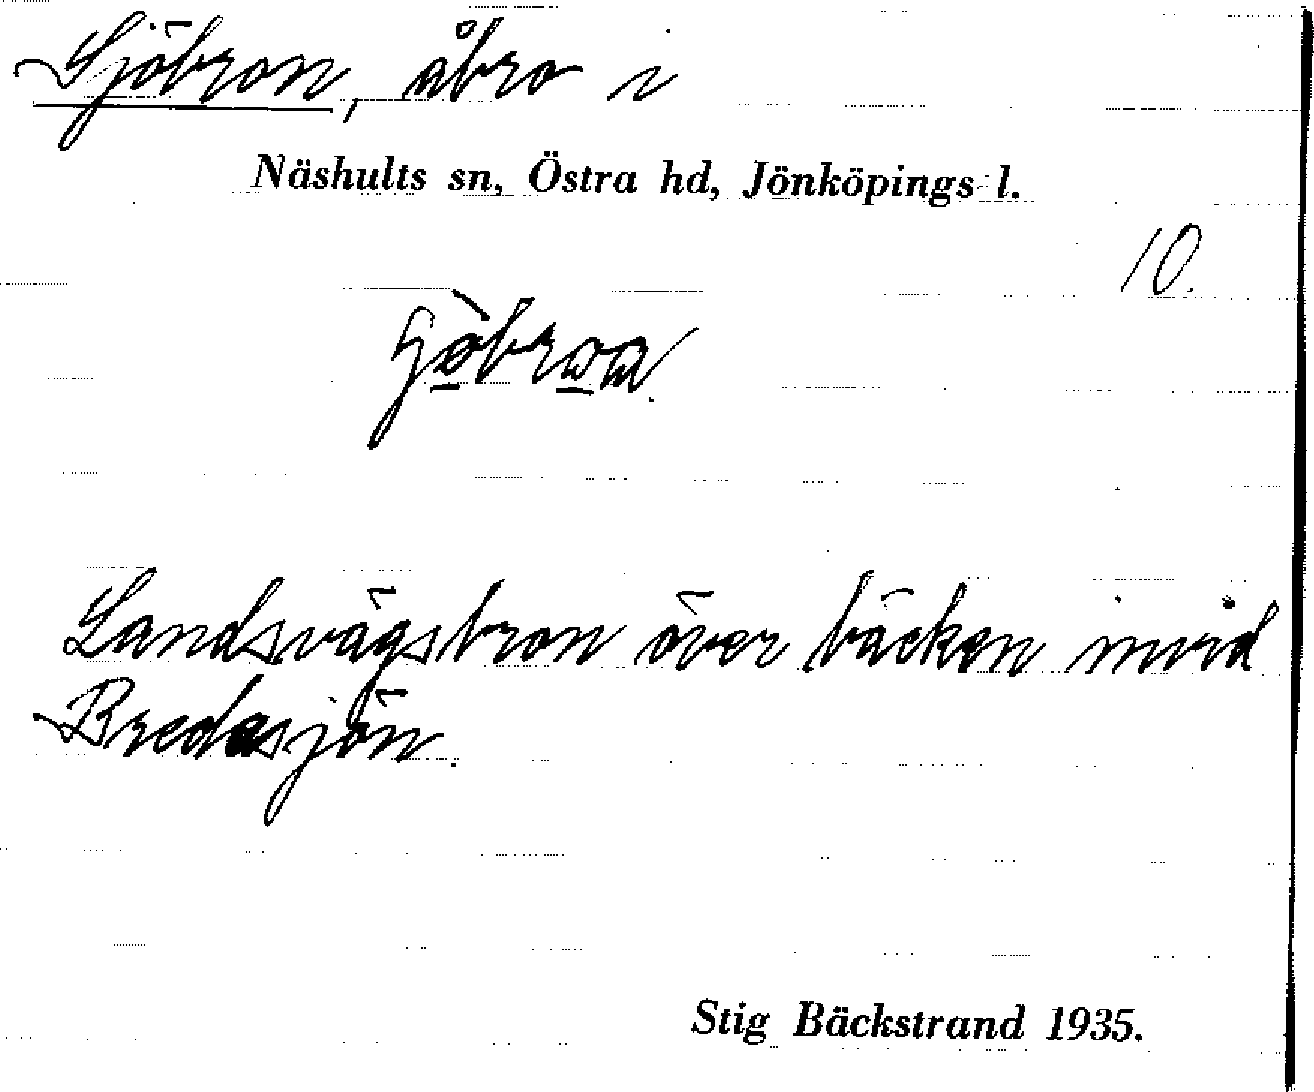 Sjöbron, åbro i
Näshults sn, Östra hd, Jönköpings l.
10.
Landsvägsbron över bäcken invid
Bredasjön.
Stig Bäckstrand 1935.